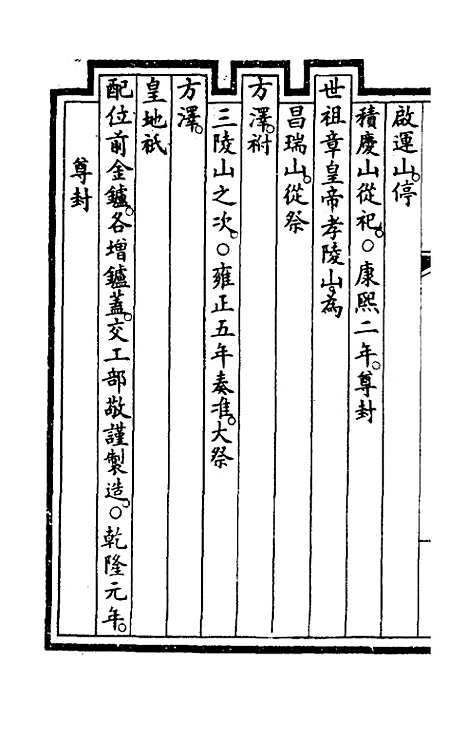 啟運山。停
積慶山從祀。○康熙二年。尊封
世祖章皇帝孝陵山。為
昌瑞山。從祭
方澤。祔
三陵山之次。○雍正五年奏准。大祭
方澤。
皇地祇
配位前金鑪。各增鑪蓋。交工部敬謹製造。○乾隆元年。
尊封